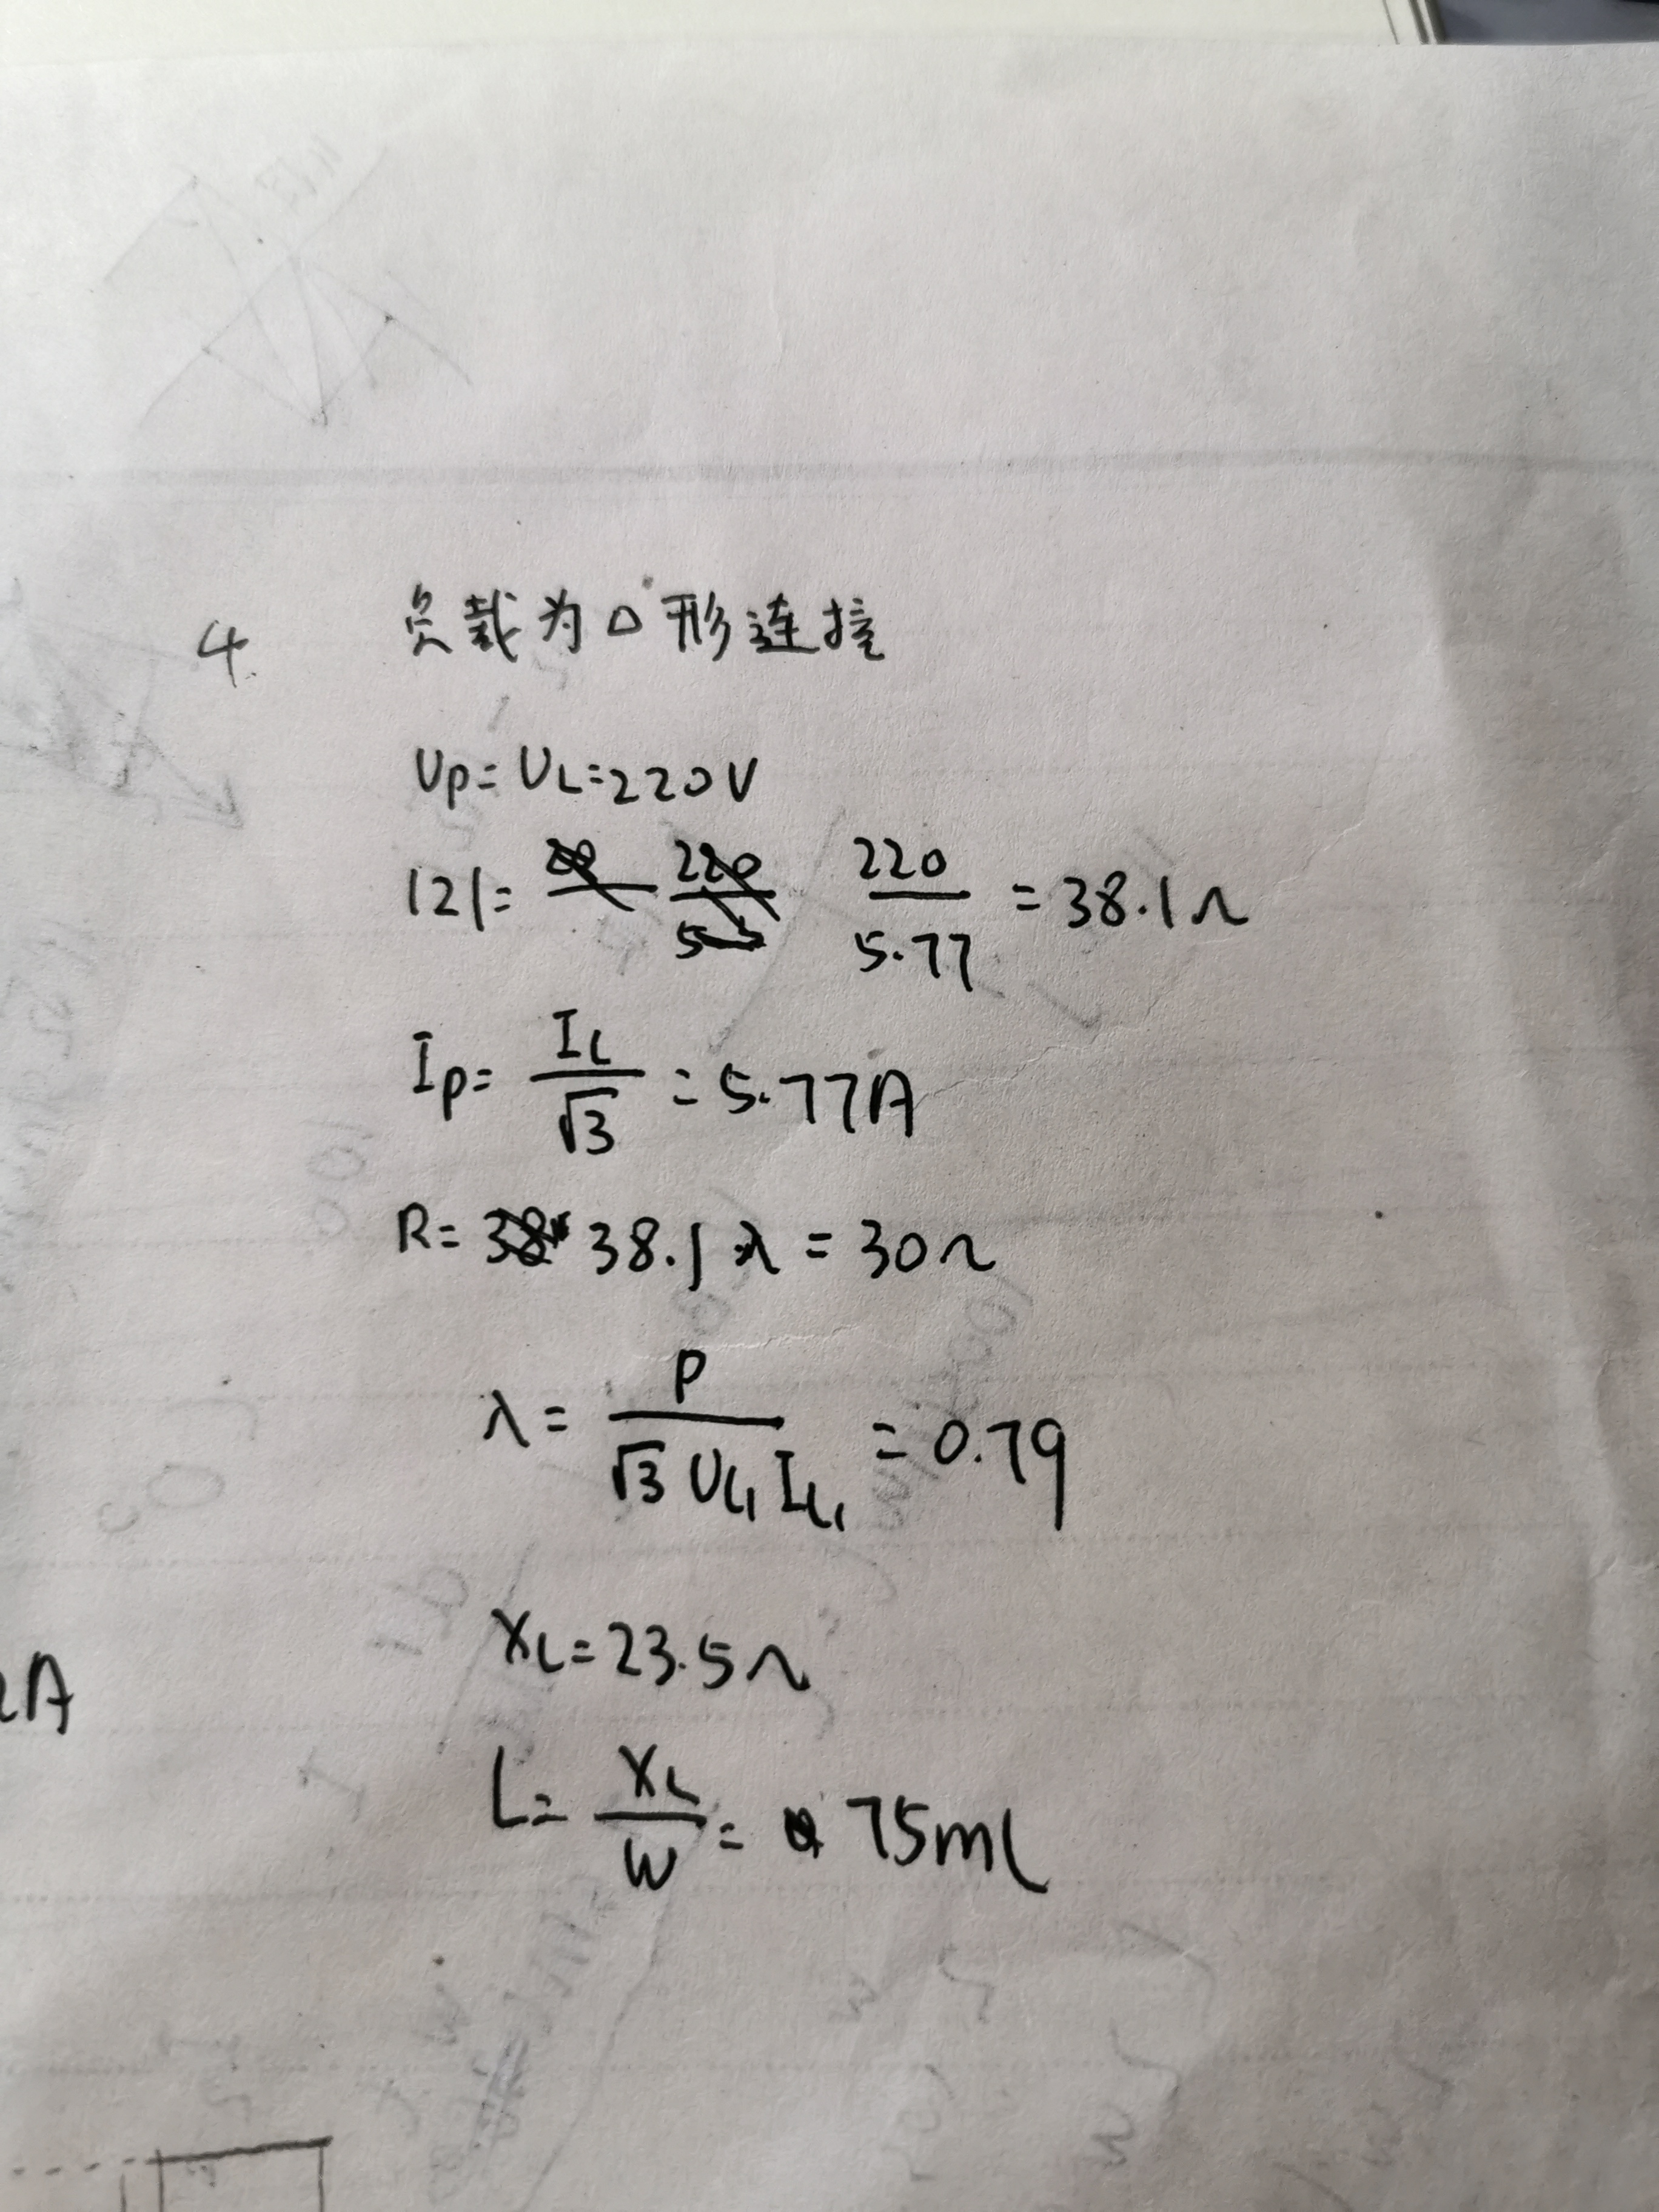 4. 负载为△形连接
UP=UL=220V
|Z|= 220/5.77 =38.1Ω
IP= IL/√3 =5.77A
R= 38.1λ=30Ω
λ= P/√3 UL IL =0.79
XL=23.5Ω
A
L= XL/W = 75mL